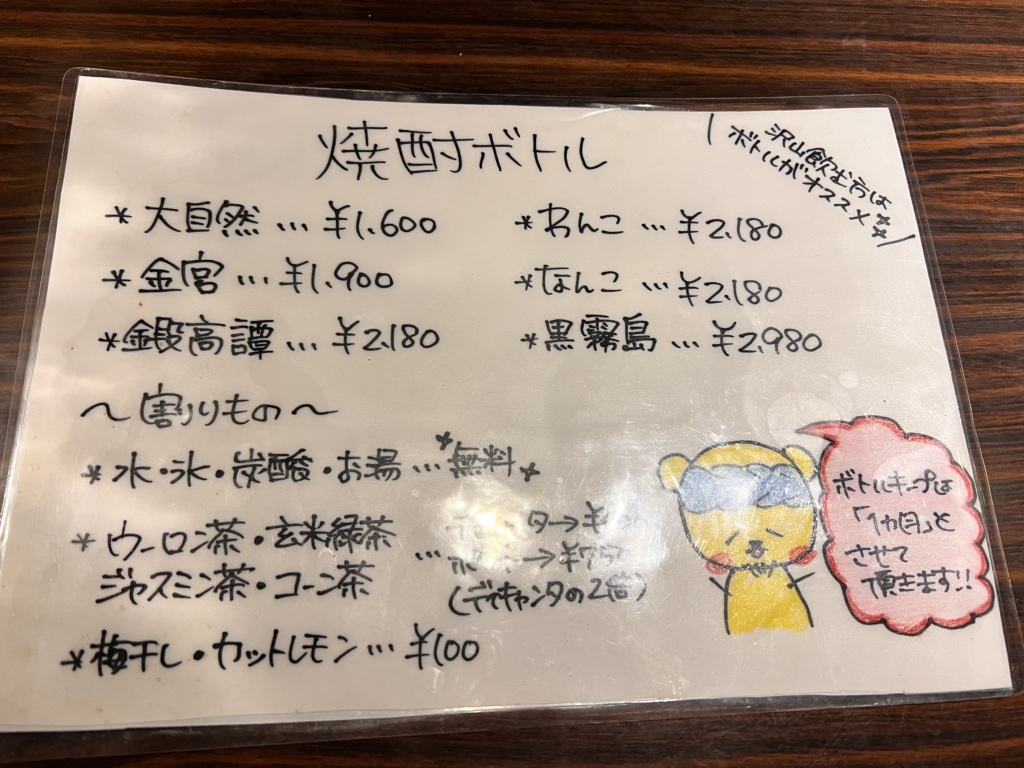 焼酎ボトル
沢山飲む方は
ボトルがオススメ
*大自然…¥1,600
*れんこ…¥2,180
*金宮…¥1,900
*なんこ…¥2,180
*鍛高譚…¥2,180
*黒霧島…¥2,980
〜割りもの〜
*水・氷・炭酸・お湯…*無料*
*ウーロン茶・玄米緑茶
ジャスミン茶・コーン茶
…
(デキャンタの2倍)
*梅干し・カットレモン…¥100
ボトルキープは
「1カ月」と
させて
頂きます!!